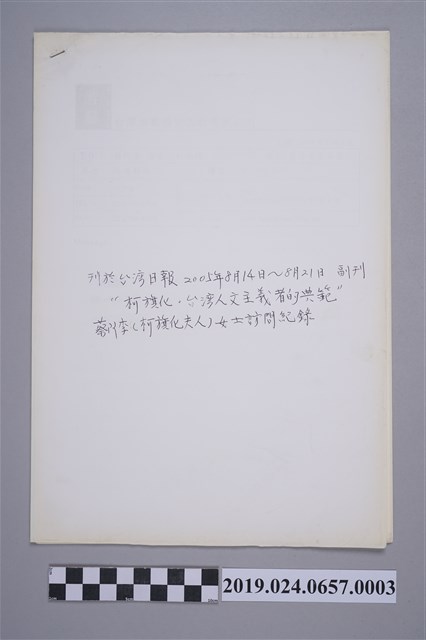 刊於台湾日報 2005年8月14日～8月21日 副刊
"柯旗化·台湾人文主義者的典範"
蔡阿李(柯旗化夫人)女士訪問紀錄
2019.024.0657.0003